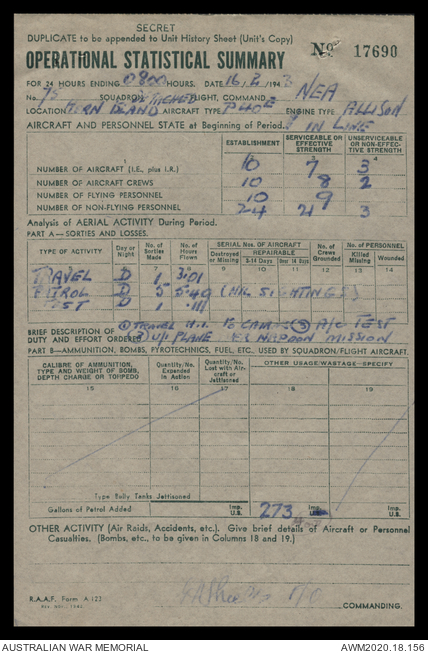 SECRET
DUPLICATE to be appended to Unit History Sheet (Unit's Copy)
OPERATIONAL STATISTICAL SUMMARY No 17690
FOR 24 HOURS ENDING 0800 HOURS. DATE 16/2/1943
No. 75 SQUADRON FLIGHT, COMMAND NEA
LOCATION HORN ISLAND AIRCRAFT TYPE P40E ENGINE TYPE ALLISON
AIRCRAFT AND PERSONNEL STATE at Beginning of Period. IN LINE
ESTABLISHMENT SERVICEABLE OR EFFECTIVE STRENGTH UNSERVICEABLE OR NON-EFFECTIVE STRENGTH
NUMBER OF AIRCRAFT (I.E., plus I.R.) 10 7 3
NUMBER OF AIRCRAFT CREWS 10 8 2
NUMBER OF FLYING PERSONNEL 10 9
NUMBER OF NON-FLYING PERSONNEL 24 21 3
Analysis of AERIAL ACTIVITY During Period.
PART A—SORTIES AND LOSSES.
TYPE OF ACTIVITY Day or Night No. of Sorties Made No. of Hours Flown SERIAL Nos. OF AIRCRAFT Destroyed or Missing REPAIRABLE No. of Crews Grounded No. of PERSONNEL Killed Missing Wounded
10 11 12 13 14
TRAVEL D 1 3.01
PATROL D 5 5.40 (NIL SIGHTINGS)
TEST D 1 .11
BRIEF DESCRIPTION OF DUTY AND EFFORT ORDERED ① TRAVEL H.I. TO ③ A/C TEST
② U/I PLANE MISSION
PART B—AMMUNITION, BOMBS, PYROTECHNICS, FUEL, ETC., USED BY SQUADRON/FLIGHT AIRCRAFT.
CALIBRE OF AMMUNITION, TYPE AND WEIGHT OF BOMB, DEPTH CHARGE OR TORPEDO Quantity/No. Expended in Action Quantity/No. Lost with Aircraft or Jettisoned OTHER USAGE/WASTAGE—SPECIFY
15 16 17 18 19
Type Belly Tanks Jettisoned
Gallons of Petrol Added Imp. U.S. 273 Imp. U.S. Imp. U.S.
OTHER ACTIVITY (Air Raids, Accidents, etc.). Give brief details of Aircraft or Personnel
Casualties. (Bombs, etc., to be given in Columns 18 and 19.)
R.A.A.F. Form A.123
COMMANDING.
AUSTRALIAN WAR MEMORIAL AWM2020.18.156